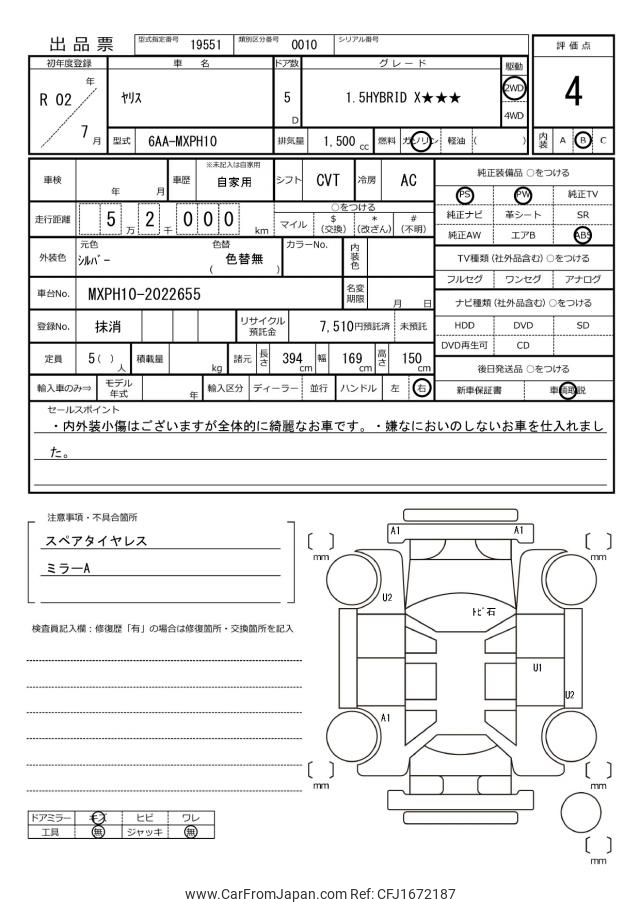 出品票 型式指定番号 19551 類別区分番号 0010 シリアル番号
評価点
4
内装 A B C
初年度登録 車名 ドア数 グレード 駆動
R 02 年 / 7 月 ﾔﾘｽ 5 D 1.5HYBRID X★★★ 2WD 4WD
型式 6AA-MXPH10 排気量 1,500 cc 燃料 ガソリン 軽油 ( )
車検 年 月 車歴 ※未記入は自家用 自家用 シフト CVT 冷房 AC
走行距離 5 万 2 千 0 0 0 km ○をつける
マイル $ (交換) * (改ざん) # (不明)
外装色 元色 ｼﾙﾊﾞｰ 色替 ( 色替無 ) カラーNo. 内装色
車台No. MXPH10-2022655 名変期限 月 日
登録No. 抹消 リサイクル預託金 7,510円預託済 未預託
定員 5 ( ) 人 積載量 kg 諸元 長さ 394 cm 幅 169 cm 高さ 150 cm
輸入車のみ⇒ モデル年式 年 輸入区分 ディーラー 並行 ハンドル 左 右
純正装備品 ○をつける
PS PW 純正TV
純正ナビ 革シート SR
純正AW エアB ABS
TV種類 (社外品含む) ○をつける
フルセグ ワンセグ アナログ
ナビ種類 (社外品含む) ○をつける
HDD DVD SD
DVD再生可 CD
後日発送品 ○をつける
新車保証書 車輌取説
セールスポイント
・内外装小傷はございますが全体的に綺麗なお車です。・嫌なにおいのしないお車を仕入れまし
た。
注意事項・不具合箇所
スペアタイヤレス
ミラーA
検査員記入欄：修復歴「有」の場合は修復箇所・交換箇所を記入
A1 A1
mm mm
U2
ﾄﾋﾞ石
U1
U2
A1
mm mm
mm
ドアミラー キズ ヒビ ワレ
工具 無 ジャッキ 無
www.CarFromJapan.com Ref: CFJ1672187